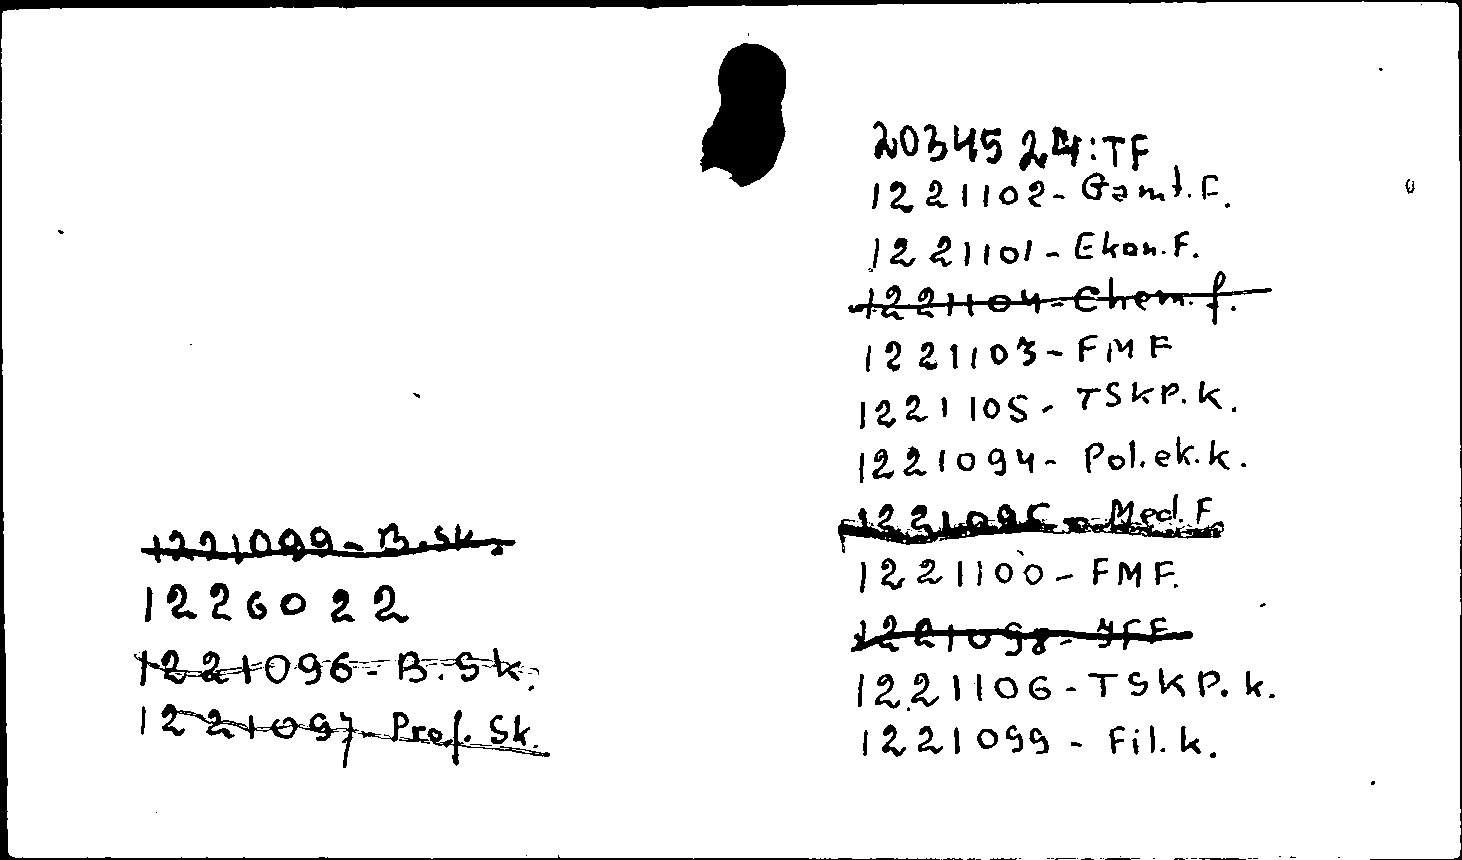 1221099 - B.Sk.
1226022
1221096 - B.Sk.
1221097 - Prof. Sk.
2034524: TF
1221102 - Gamt. F.
1221101 - Ekon. F.
1221104 - Chem. f.
1221103 - FMF
1221105 - TSKP. k.
1221094 - Pol. ek. k.
1221095 - Med. F.
1221100 - FMF.
1221098 -
1221106 - TSKP. k.
1221099 - Fil. k.